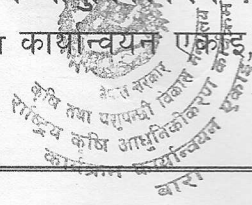 कार्यान्वयन एकाइ
नेपाल सरकार
कृषि तथा पशुपन्छी विकास मन्त्रालय
राष्ट्रिय कृषि आधुनिकीकरण
कार्यक्रम कार्यान्वयन एकाइ
बारा